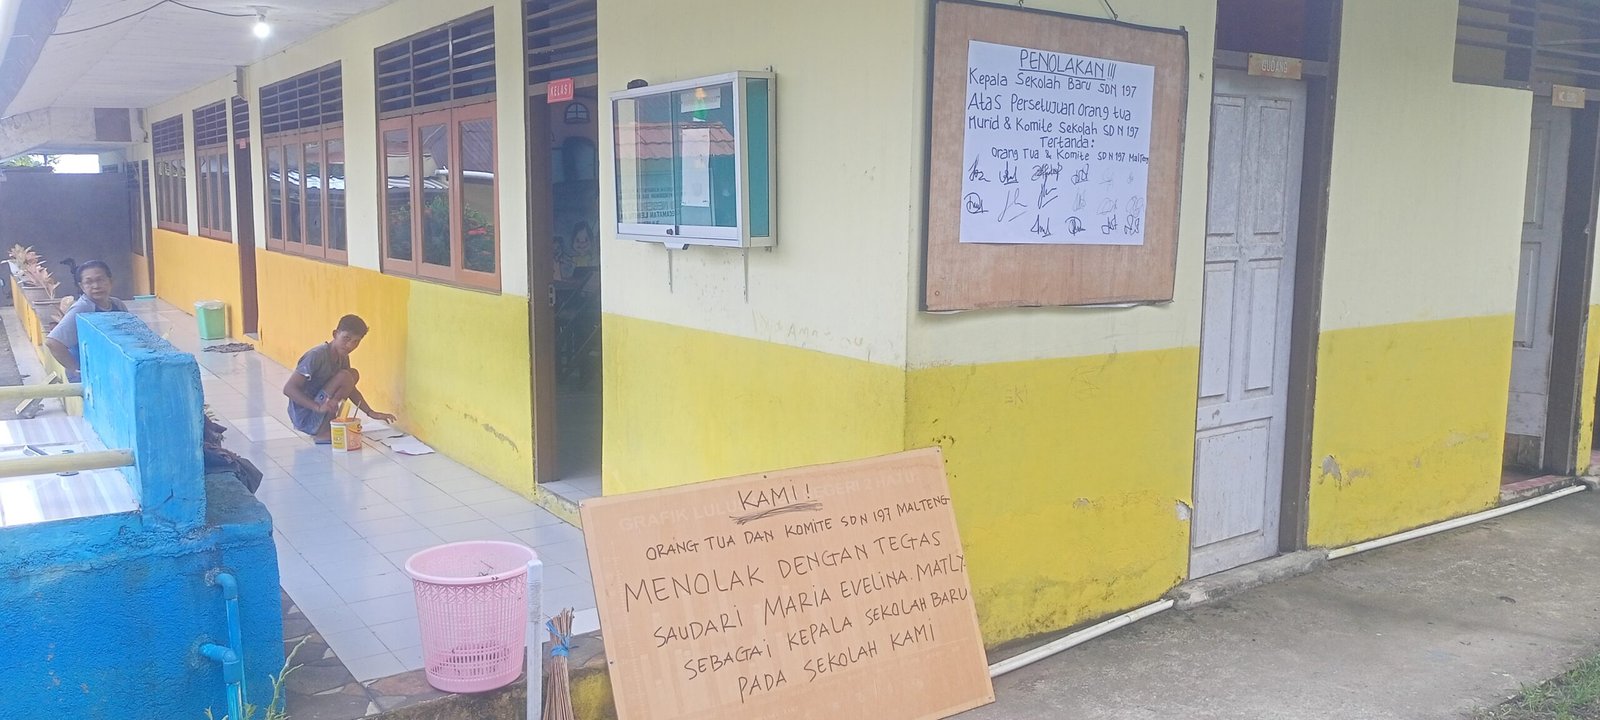 KELAS I
PENOLAKAN!!!
Kepala Sekolah Baru SDN 197
Atas Persetujuan Orang tua
Murid & Komite Sekolah SDN 197
Tertanda:
Orang Tua & Komite SDN 197 Malteng
GUDANG
KAMI!
ORANG TUA DAN KOMITE SDN 197 MALTENG
MENOLAK DENGAN TEGAS
SAUDARI MARIA EVELINA. MATLY
SEBAGAI KEPALA SEKOLAH BARU
PADA SEKOLAH KAMI